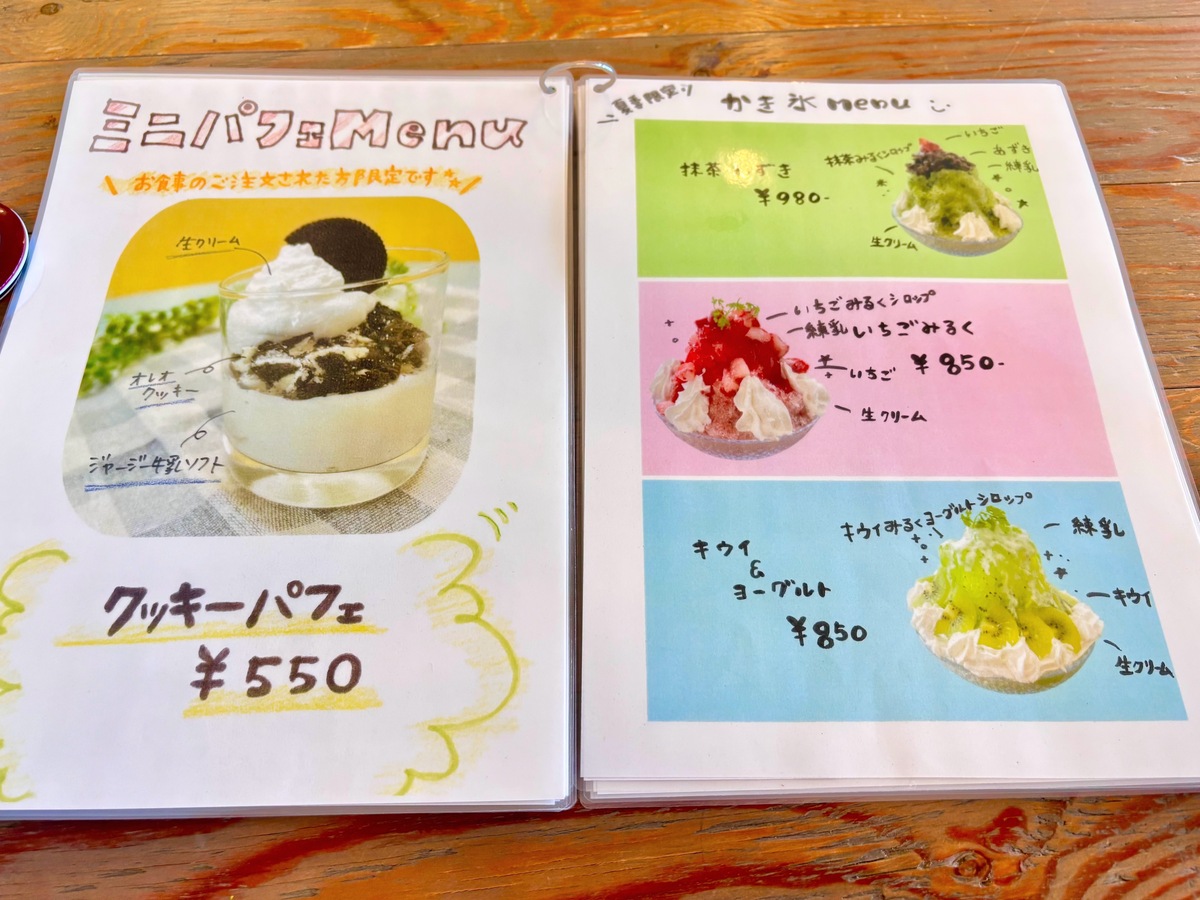 ミニパフェMenu
お食事のご注文された方限定です
生クリーム
オレオ
クッキー
ジャージー牛乳ソフト
クッキーパフェ
¥550
夏季限定
かき氷menu
抹茶
ずき
¥980-
抹茶みるくシロップ
いちご
あずき
練乳
生クリーム
いちごみるくシロップ
練乳
いちごみるく
いちご
¥850-
生クリーム
キウイみるくヨーグルトシロップ
キウイ
&
ヨーグルト
¥850
練乳
キウイ
生クリーム